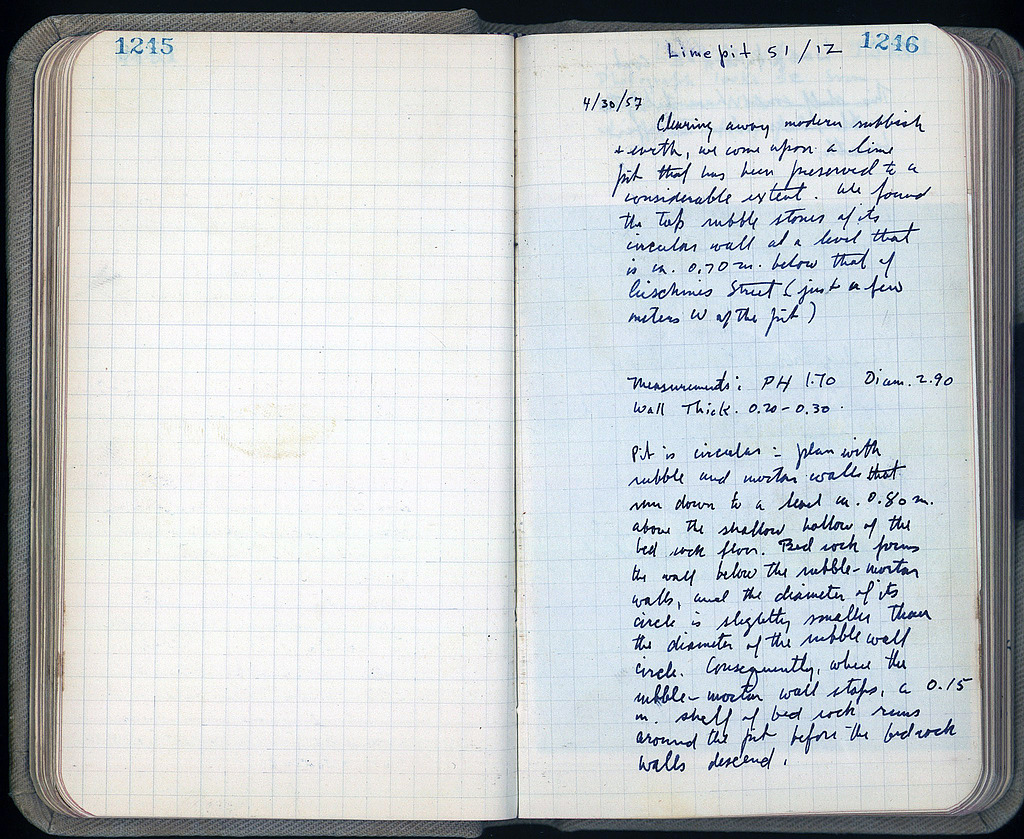 1245
1246
Lime pit 51/12
4/30/57
Clearing away modern rubbish
+ earth, we come upon a lime
pit that has been preserved to a
considerable extent. We found
the top rubble stones of its
circular wall at a level that
is ca. 0.70 m. below that of
Aischines Street (just a few
meters W of the pit)
Measurements: PH 1.70 Diam. 2.90
Wall Thick. 0.20-0.30.
Pit is circular in plan with
rubble and mortar walls that
run down to a level ca. 0.80 m.
above the shallow hollow of the
bed rock floor. Bed rock forms
the wall below the rubble-mortar
walls, and the diameter of its
circle is slightly smaller than
the diameter of the rubble wall
circle. Consequently, where the
rubble-mortar wall stops, a 0.15
m. shelf of bed rock runs
around the pit before the bedrock
walls descend.